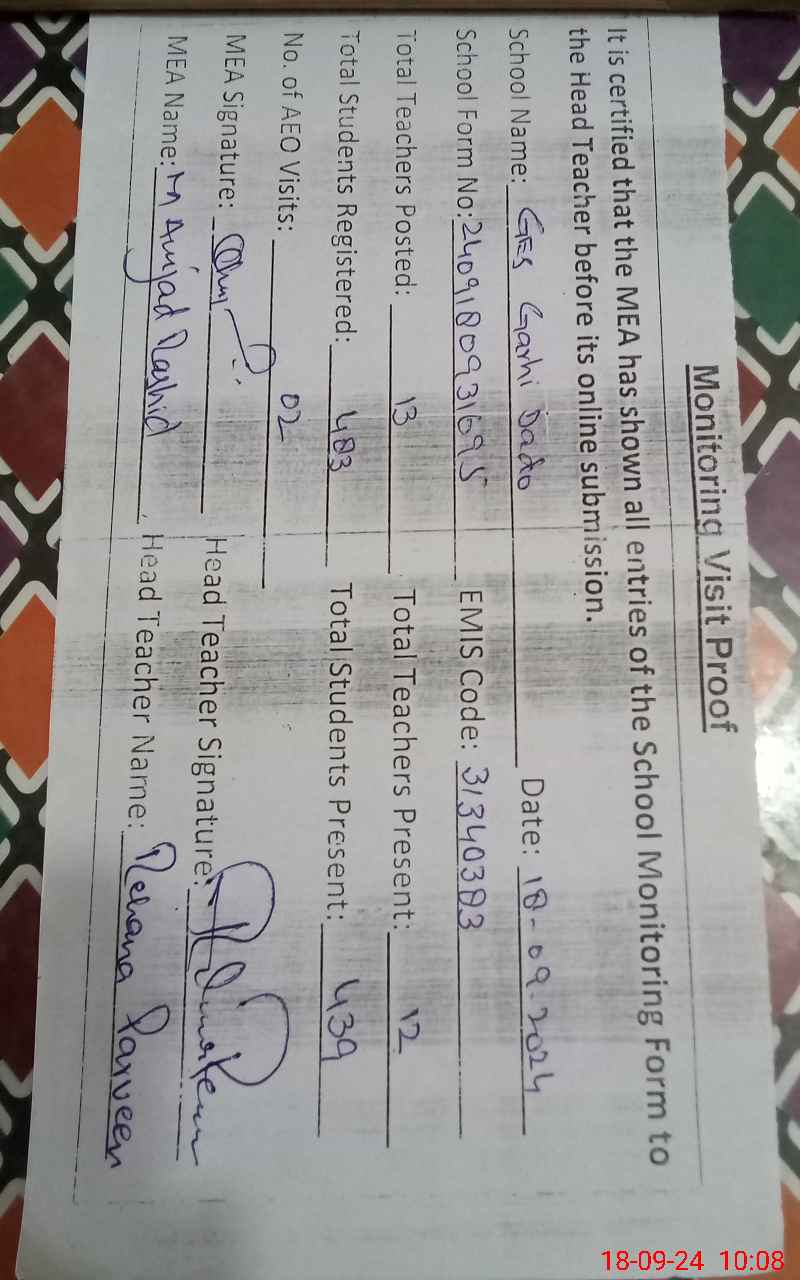 Monitoring Visit Proof
It is certified that the MEA has shown all entries of the School Monitoring Form to
the Head Teacher before its online submission.
School Name: GES Garhi Dado Date: 18-09-2024
School Form No: 2409180931695 EMIS Code: 31340383
Total Teachers Posted: 13 Total Teachers Present: 12
Total Students Registered: 483 Total Students Present: 439
No. of AEO Visits: 02
MEA Signature: Head Teacher Signature:
MEA Name: M Amjad Rashid, Head Teacher Name: Rehana Parveen
18-09-24 10:08